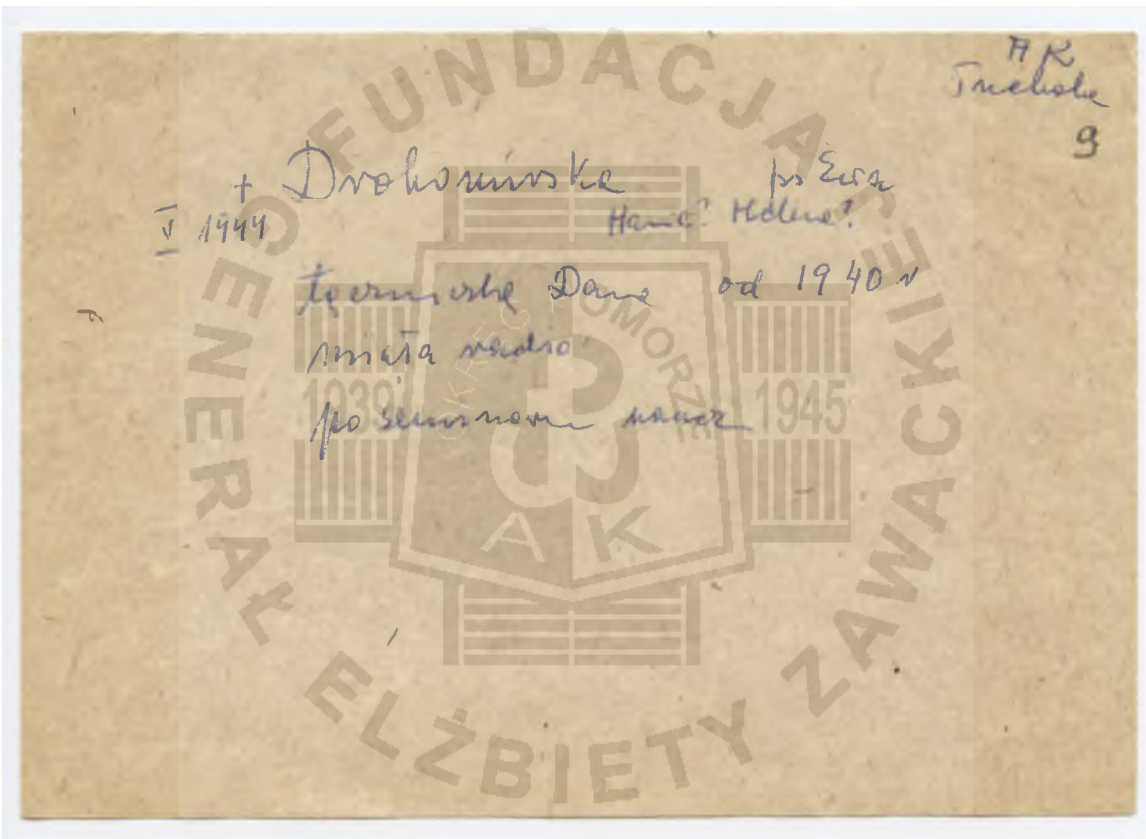 AK
Tuchola
9
+ Drohomirska ps Ewa
I 1944 Hania? Helena?
łączniczka Dana od 1940 r
miała radio
po seminarium naucz
FUNDACJA GENERAŁ ELŻBIETY ZAWACKIEJ
OKRĘG POMORZE
1939 1945
AK